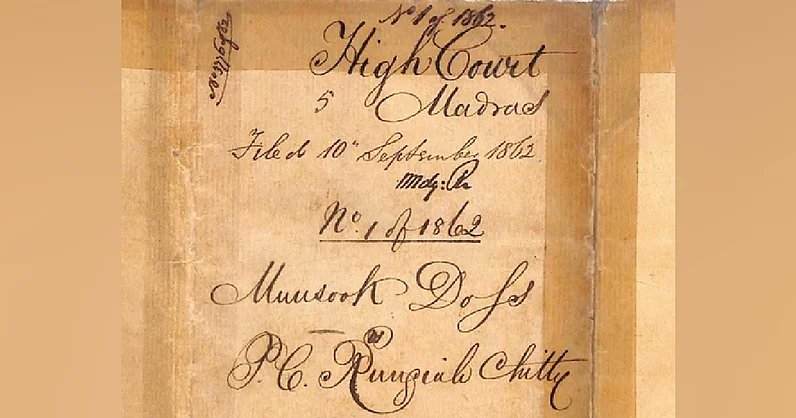 No. 1 of 1862.
High Court
5 Madras
Filed 10" September 1862.
No. 1 of 1862
Munsook Doss
vs
P. C. Rungiah Chitty